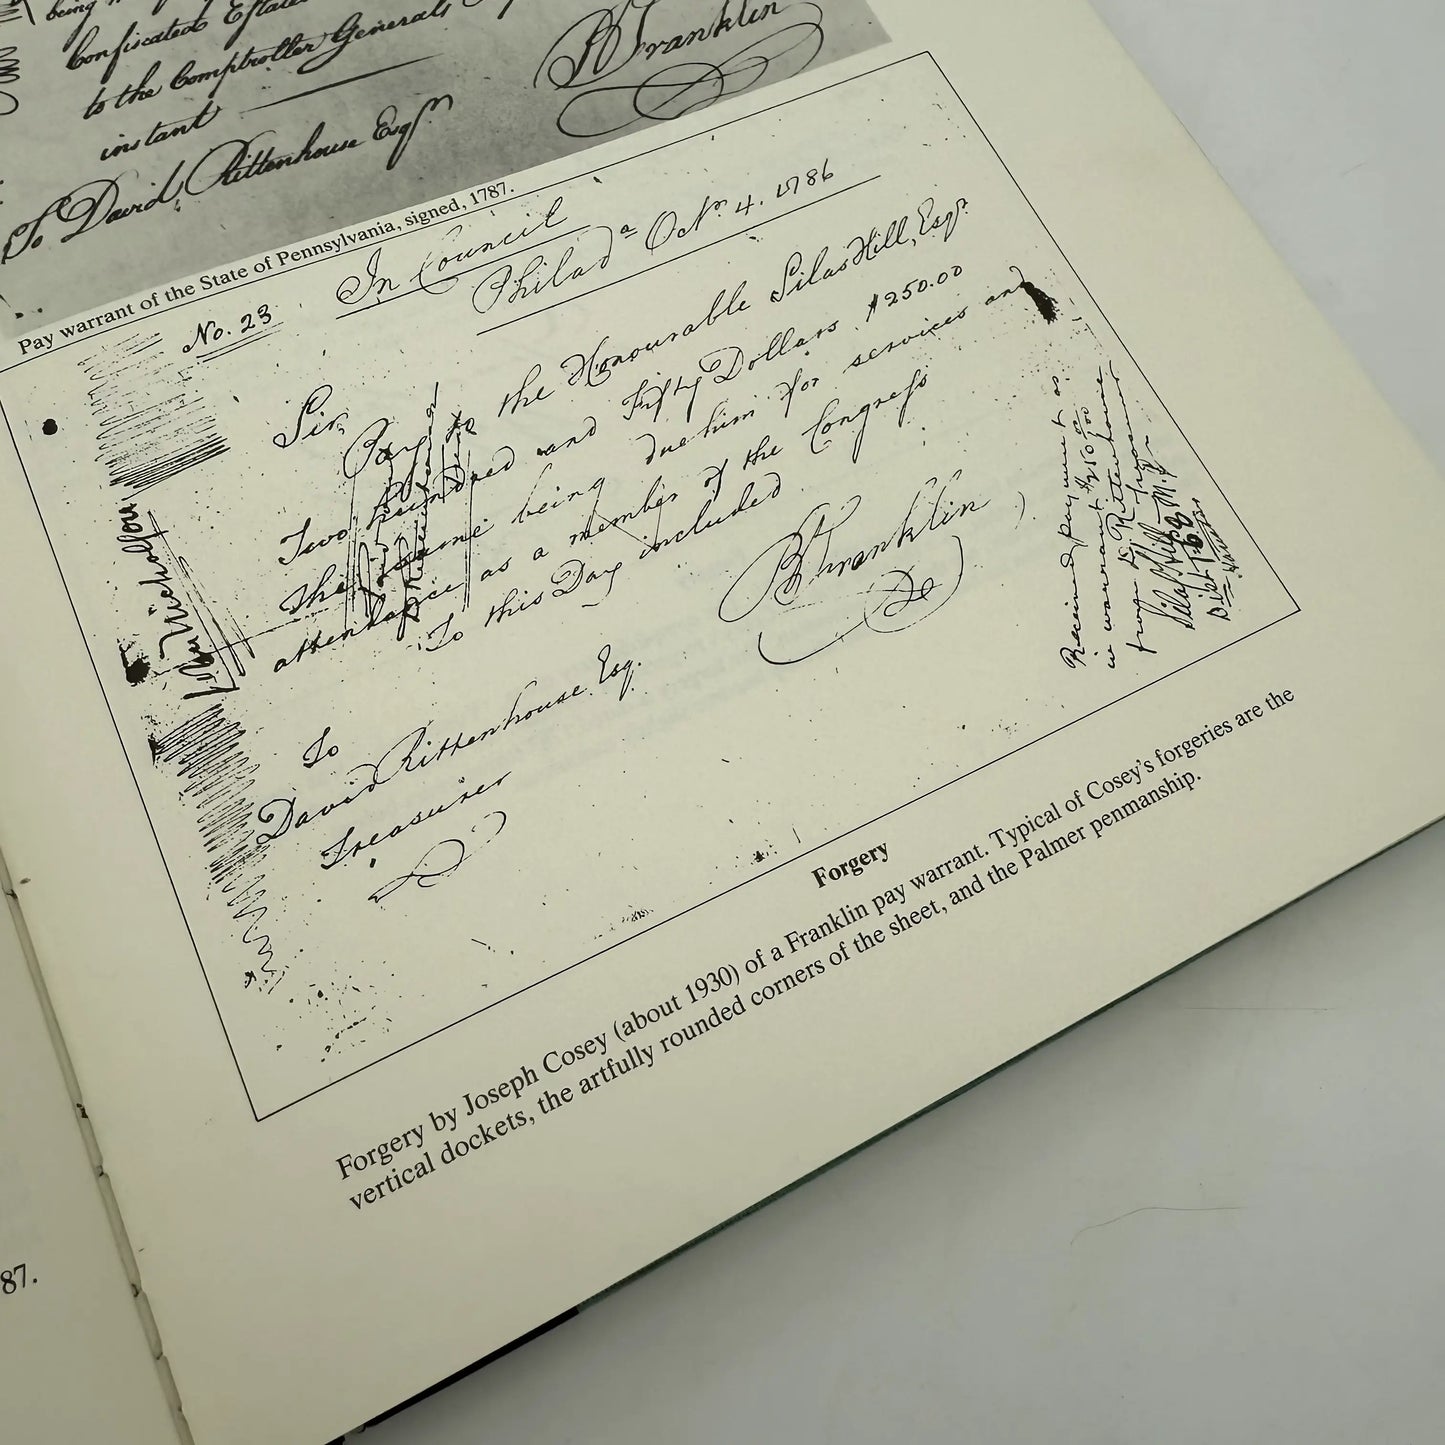 being
Confiscated Estates
to the Comptroller Generals
instant
B Franklin
To David Rittenhouse Esqr
Pay warrant of the State of Pennsylvania, signed, 1787.
No. 23
In Council
Philada Octr. 4. 1786
Sir,
Pay to the Honourable Silas Hill, Esqr.
Two hundred and Fifty Dollars $250.00
the same being due him for services and
attendance as a member of the Congress
To this Day included
B Franklin
To
David Rittenhouse Esq.
Treasurer
John Nicholson
Received payment as
in warrant $250.00
from D. Rittenhouse
Silas Hill
Forgery
Forgery by Joseph Cosey (about 1930) of a Franklin pay warrant. Typical of Cosey's forgeries are the
vertical dockets, the artfully rounded corners of the sheet, and the Palmer penmanship.
87.